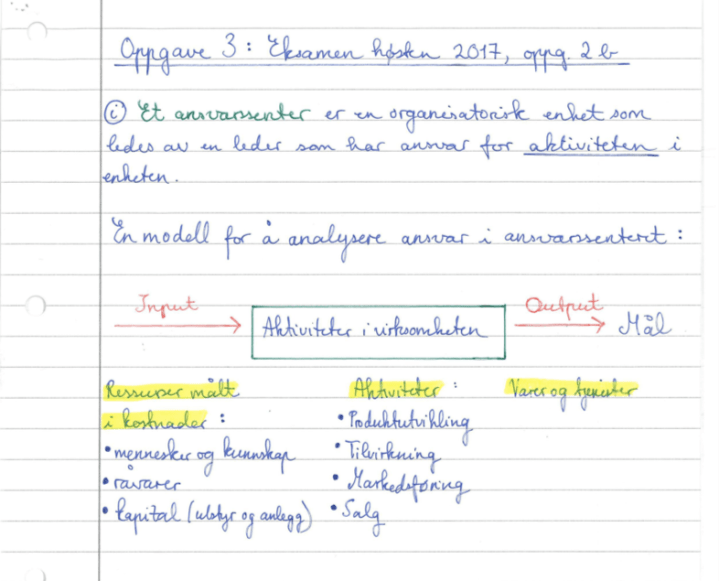 Oppgave 3: Eksamen høsten 2017, oppg. 2 b
(i) Et ansvarssenter er en organisatorisk enhet som
ledes av en leder som har ansvar for aktiviteten i
enheten.
En modell for å analysere ansvar i ansvarssenteret:
Input
Aktiviteter i virksomheten
Output
Mål
Ressurser målt
i kostnader:
• mennesker og kunnskap
• råvarer
• kapital (utstyr og anlegg)
Aktiviteter:
• Produktutvikling
• Tilvirkning
• Markedsføring
• Salg
Varer og tjenester